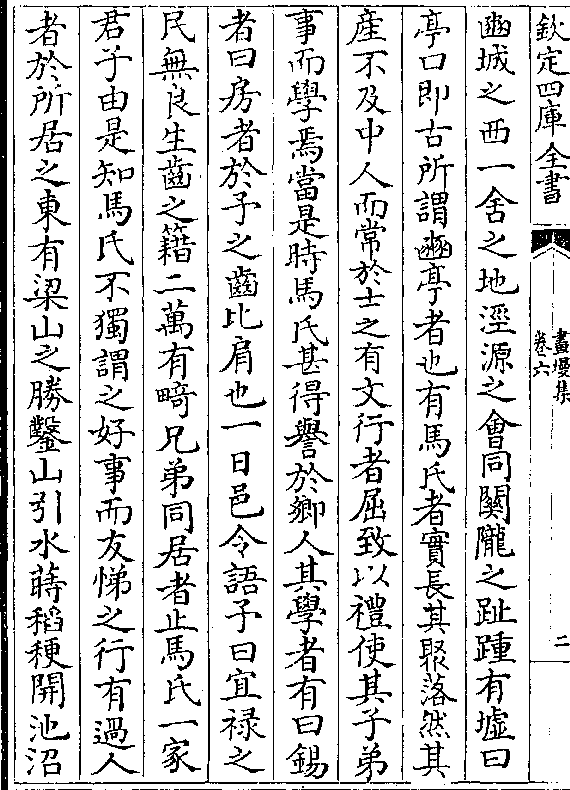 欽定四庫全書
畫墁集
卷六
二
豳城之西一舍之地涇源之會同闗隴之趾踵有墟曰
亭口即古所謂豳亭者也有馬氏者實長其聚落然其
產不及中人而常於士之有文行者屈致以禮使其子弟
事而學焉當是時馬氏甚得譽於鄉人其學者有曰錫
者曰房者於予之齒比肩也一日邑令語予曰宜祿之
民無良生齒之籍二萬有畸兄弟同居者止馬氏一家
君子由是知馬氏不獨謂之好事而友悌之行有過人
者於所居之東有梁山之勝鑿山引水蒔稻稉開池沼